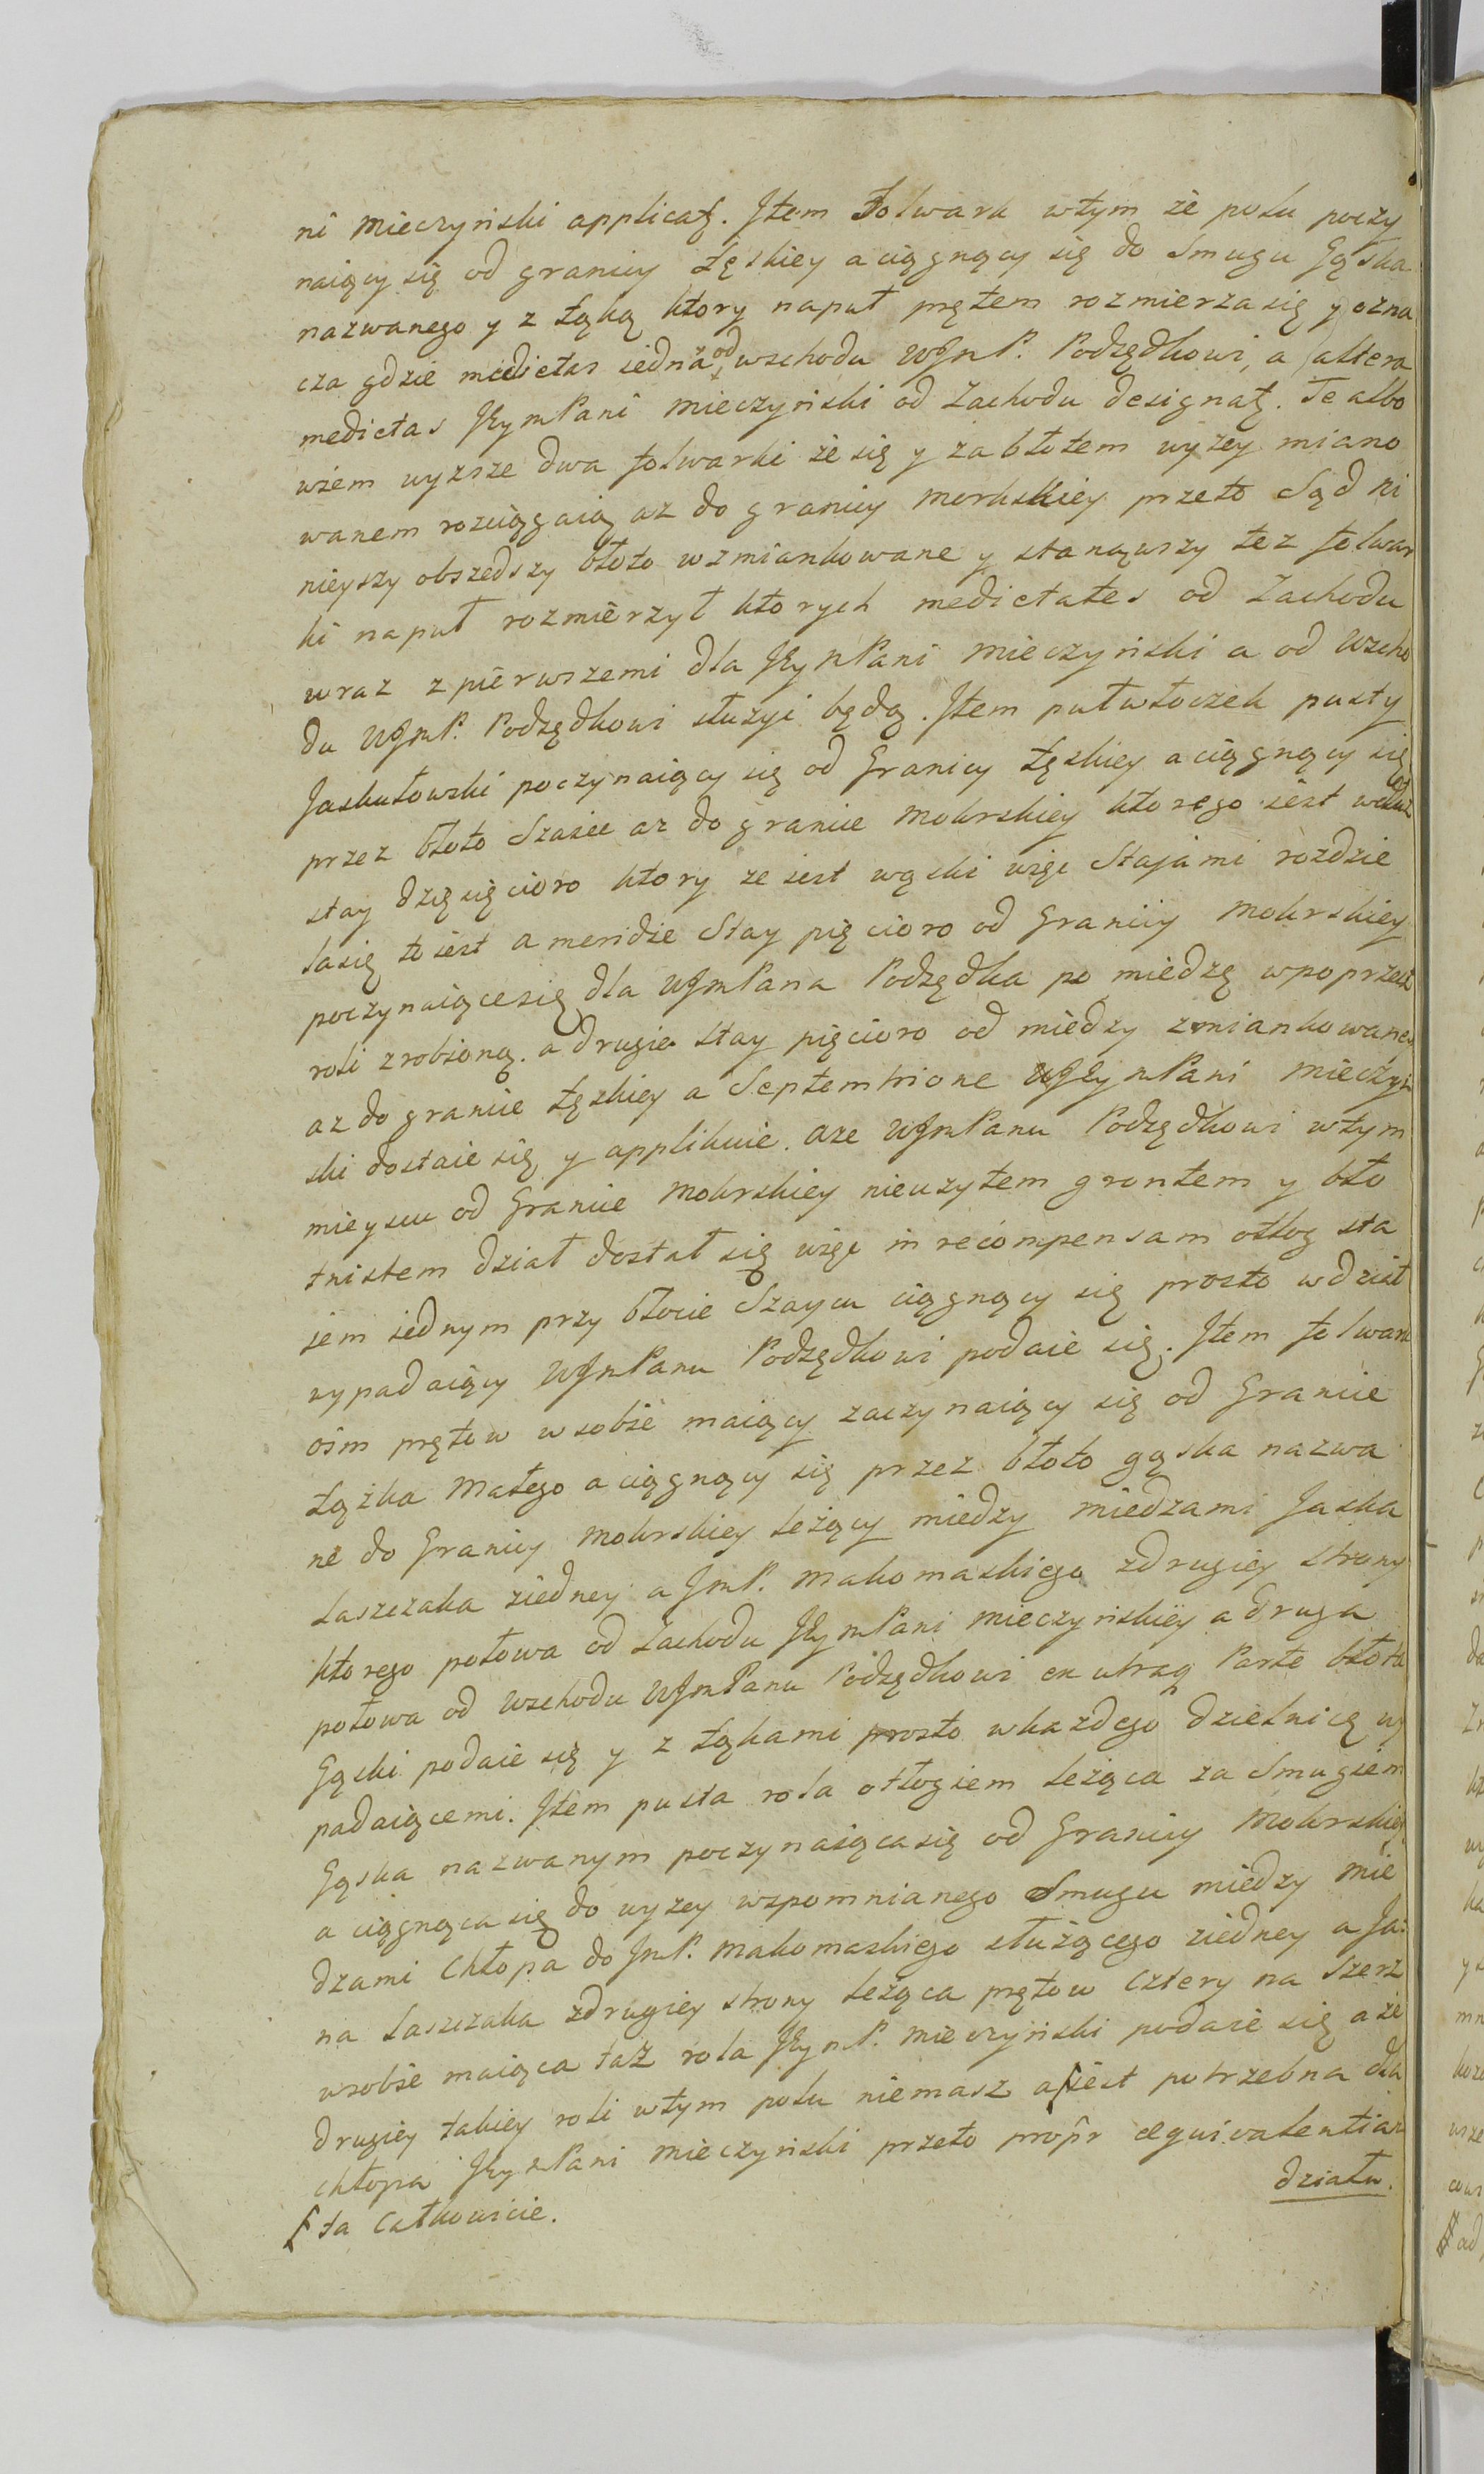 ni Mieczyński applicatꝫ. Jtem Folwark wtym że polu poczy
naiący się od granicy Łęskiey a ciągnący się do Smugu Gąska
nazwanego y z łąką ktory naput prętem rozmierza się y ozna
cza gdzie medietas iedna od wschodu WJmP. Podzędkowi, a altera
medietas JEymPani Mieczyński od Zachodu designatꝫ. Te albo
wiem wyzsze dwa folwarki że się y za błotem wyżey miano
wanem rozciągaią az do granicy Morkskiey przeto Sąd ni
nieyszy obszedszy błoto wzmiankowane y stanąwszy tez folwar
ki naput rozmierzył ktorych medietates od Zachodu
wraz z pierwszemi dla JEymPani Mieczyński a od Wscho
du WJmP. Podzędkowi słuzyć będą. Jtem putwłoczek pusty
Jaskułowski poczynaiący się od Granicy Łęskiey a ciągnący się
przez błoto Szaiec az do granice Mokrskiey ktorego iest wdłuz
stay dzięsięcioro ktory ze iest wąski więc Stajami rozdzie
lasię to iest a meridie Stay pięcioro od Granicy Mokrskiey
poczynaiącesię dla WJmPana Podzędka po miedzę wpoprzecz
roli zrobioną. a drugie stay pięcioro od miedzy zmiankowaney
az do granice Łęskiey a Septemtrione WJEymPani Mieczyń
ski dostaie się y applikuie. aze WJmPanu Podzędkowi wtym
mieyscu od Granice Mokrskiey nieuzytem grontem y bło
tnistem dział dostał się więc in recompensam otłog sta
jem iednym przy błocie Szaycu ciągnący się prosto wdział
wypadaiący WJmPanu Podzędkowi podaie się. Jtem folwark
ośm prętow w sobie maiący zaczynaiący się od Granice
Łążka Małego a ciągnący się przez błoto gąska nazwa
ne do Granicy Mokrskiey leżący miedzy miedzami Jaska
Laszczaka ziedney a JmP. Makomaskiego zdrugiey strony
ktorego połowa od Zachodu JEymPani Mieczyńskiey a druga
połowa od Wschodu WJmPanu Podzędkowi ex utraq Parte błota
Gąski podaie się y z łąkami prosto wkażdego dzielnicę wy
padaiącemi. Jtem pusta rola otłogiem leżąca za Smugiem
Gąska nazwanym poczynaiącasię od Granicy Mokrskiey
a ciągnąca się do wyzey wspomnianego Smugu miedzy mie
dzami Chłopa do JmP. Makomaskiego służącego ziedney a Ja:
na Laszczaka zdrugiey strony leżąca prętow cztery na Szerz
wsobie maiąca taż rola JEymP. Mieczyński podaie się a że
drugiey takiey roli wtym polu niemasz a iest potrzebna dla
chłopa JEymPani Mieczyński przeto propr aequivalentiam
działu.
ta Całkowicie.